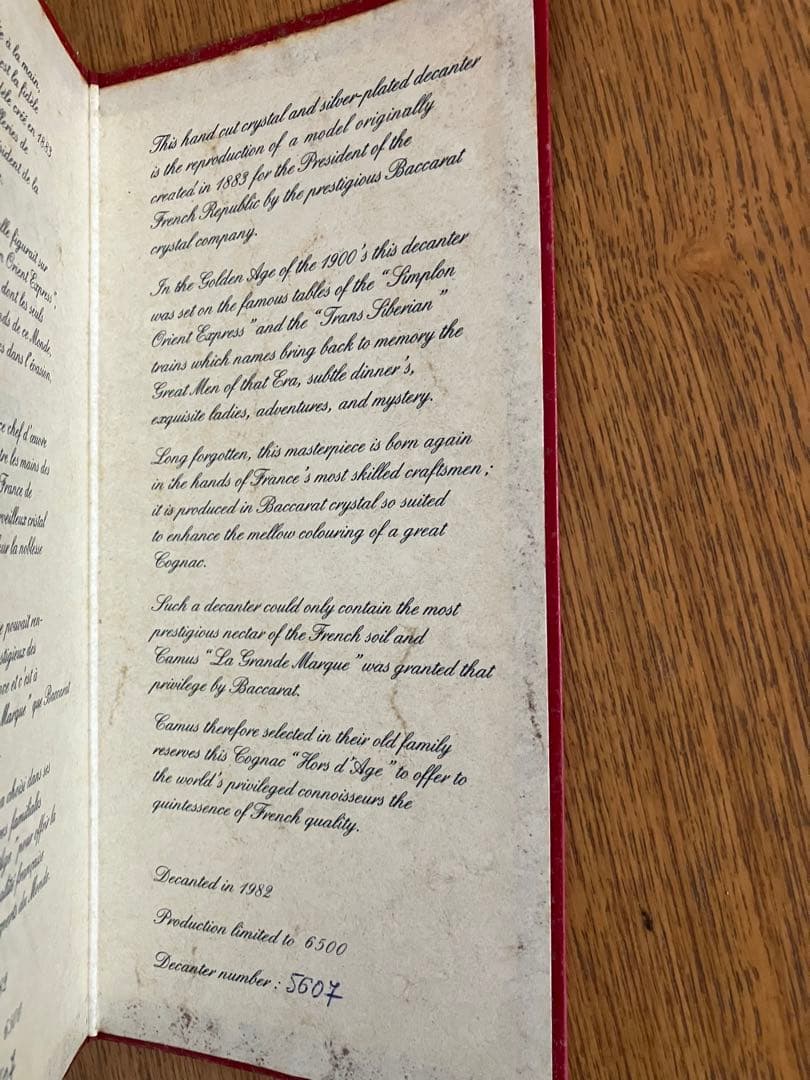 à la main,
est la fidèle
créé en 1883
de
de la
figurait sur
Orient Express"
dont les seuls
de ce Monde,
dans l'évasion,
chef d'œuvre
les mains des
France de
cristal
la noblesse
pouvait ren-
des
et c'est à
Marque" que Baccarat
choisi dans ses
familiales
pour offrir la
française
du Monde.
This hand cut crystal and silver-plated decanter
is the reproduction of a model originally
created in 1883 for the President of the
French Republic by the prestigious Baccarat
crystal company.
In the Golden Age of the 1900's this decanter
was set on the famous tables of the "Simplon
Orient Express" and the "Trans Siberian"
trains which names bring back to memory the
Great Men of that Era, subtle dinner's,
exquisite ladies, adventures, and mystery.
Long forgotten, this masterpiece is born again
in the hands of France's most skilled craftsmen ;
it is produced in Baccarat crystal so suited
to enhance the mellow colouring of a great
Cognac.
Such a decanter could only contain the most
prestigious nectar of the French soil and
Camus "La Grande Marque" was granted that
privilege by Baccarat.
Camus therefore selected in their old family
reserves this Cognac "Hors d'Age" to offer to
the world's privileged connoisseurs the
quintessence of French quality.
Decanted in 1982
Production limited to 6500
Decanter number : 5607